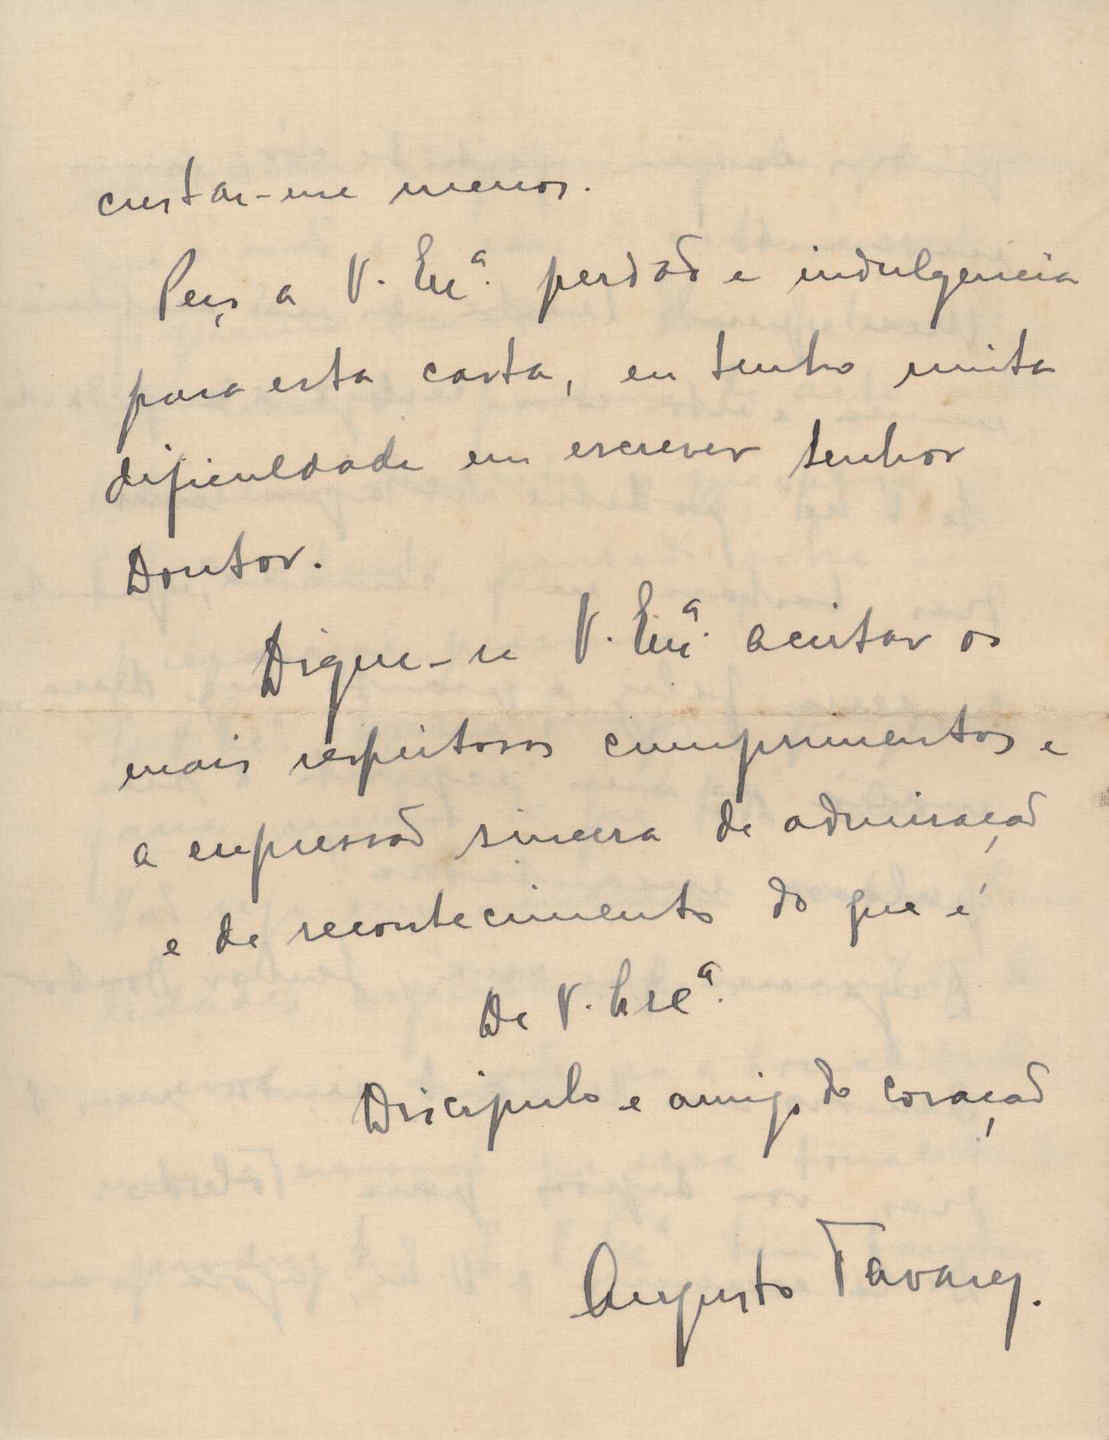 custar-me menos.
Peço a V. Exª. perdão e indulgencia
para esta carta, eu tenho muita
dificuldade em escrever Senhor
Doutor.
Digne-se V. Exª. aceitar os
mais respeitosos cumprimentos e
a expressão sincera de admiração
e de reconhecimento do que é
De V. Excª.
Discipulo e amigo do coração
Augusto Tavares.